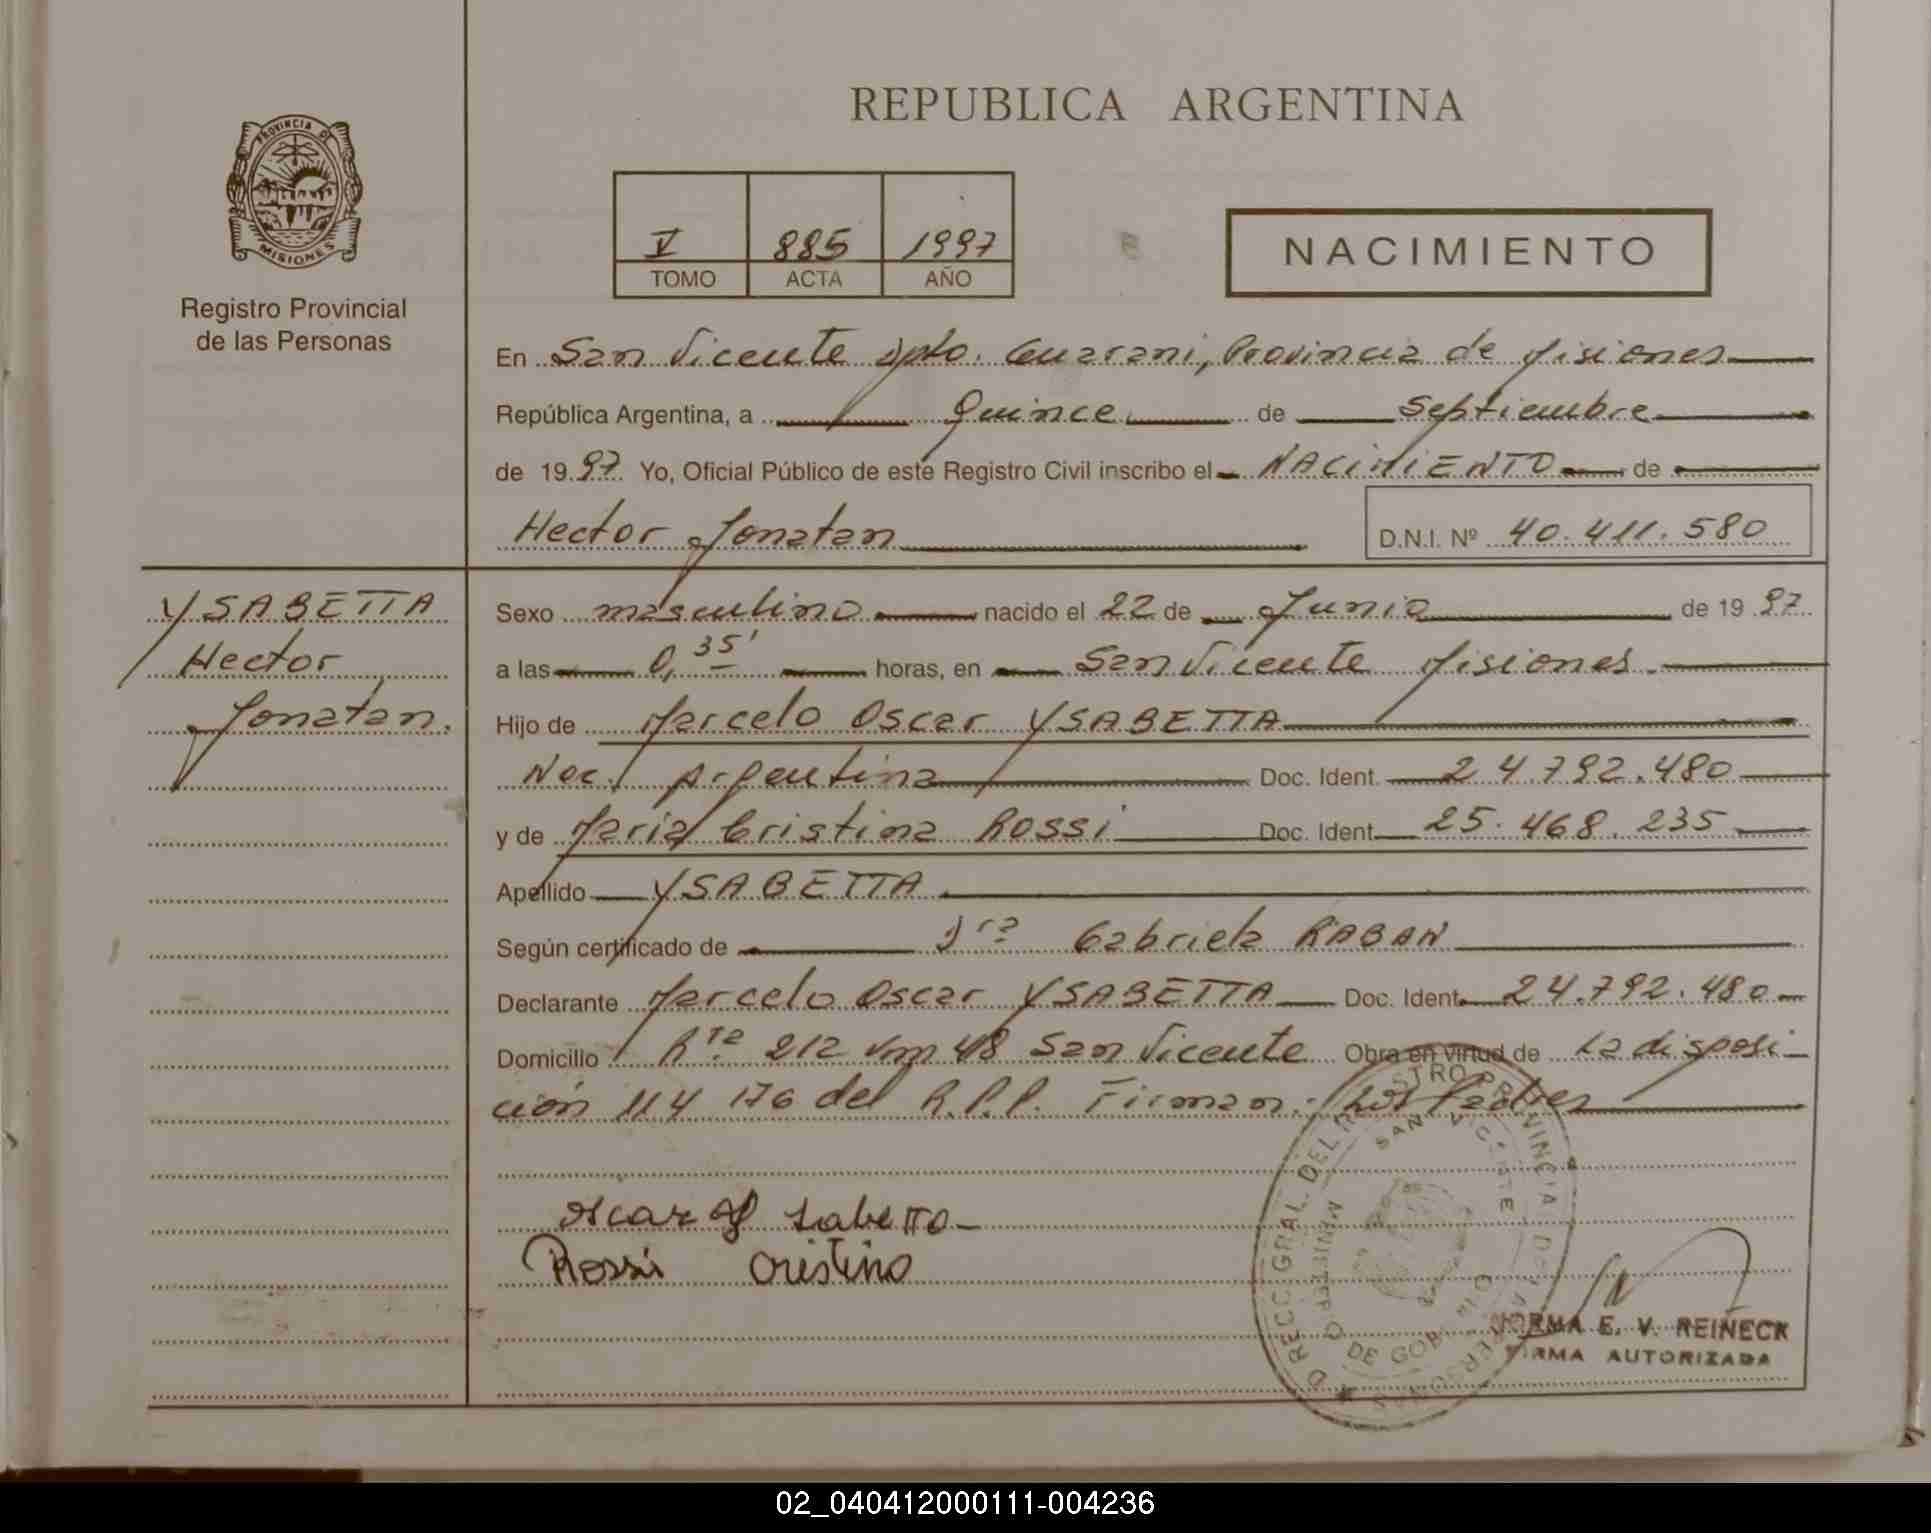 REPUBLICA ARGENTINA
PROVINCIA DE
MISIONES
Registro Provincial
de las Personas
V 885 1997
TOMO ACTA AÑO
NACIMIENTO
En San Vicente Dpto. Guarani, Provincia de Misiones
República Argentina, a Quince de Septiembre
de 19 97 Yo, Oficial Público de este Registro Civil inscribo el NACIMIENTO de
Hector Jonatan D.N.I. Nº 40.411.580
YSABETTA
Hector
Jonatan.
Sexo masculino nacido el 22 de Junio de 19 97
a las 0,35' horas, en San Vicente Misiones
Hijo de Marcelo Oscar YSABETTA
Nac. Argentina Doc. Ident. 24.792.480
y de Maria Cristina Rossi Doc. Ident. 25.468.235
Apellido YSABETTA
Según certificado de Dra Gabriela RABAN
Declarante Marcelo Oscar YSABETTA Doc. Ident. 24.792.480
Domicilio Rta 212 km 48 San Vicente Obra en virtud de la disposi-
ción 114 176 del R.P.P. Firman: los Padres
Oscar
Rossi Cristina
SAN VICENTE
MINISTERIO DE GOB.
NORMA E. V. REINECK
FIRMA AUTORIZADA
02_040412000111-004236